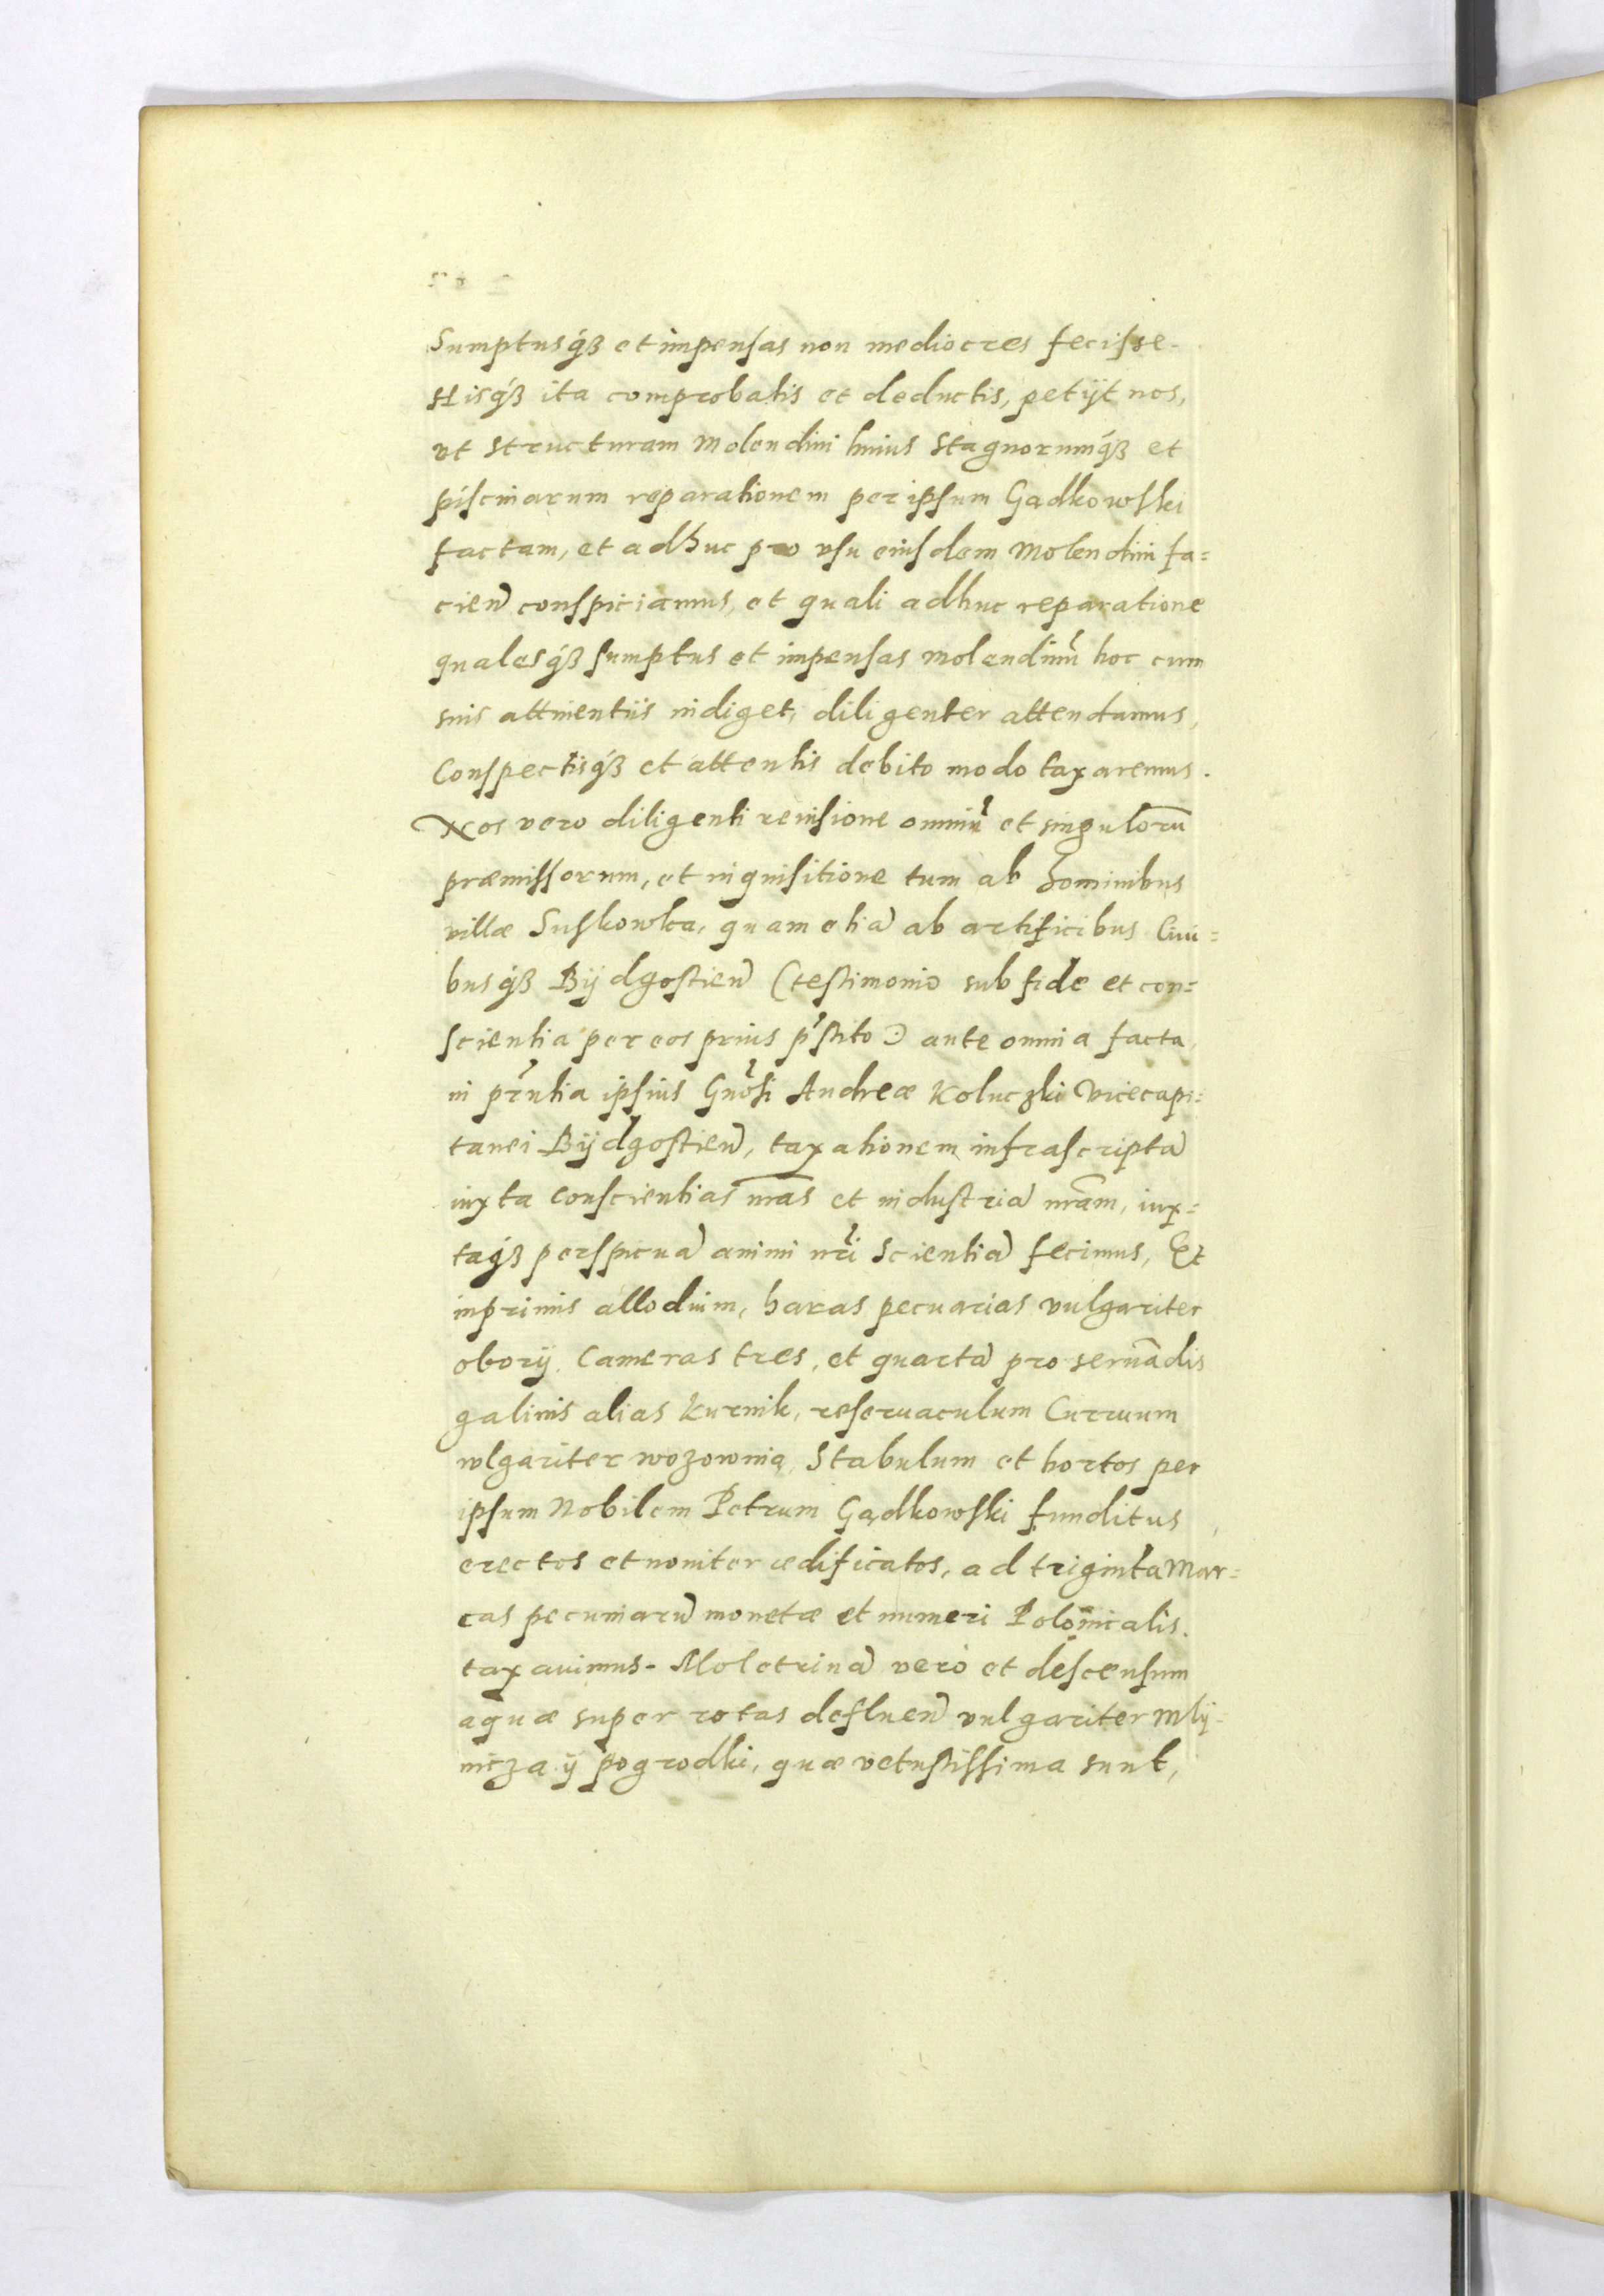 Sumptusq́ꝫ et impensas non mediocres fecisse.
Hisq́ꝫ ita comprobatis et deductis, petijt nos,
vt structuram Molendini huius Stagnorumq́ꝫ et
piscinarum reparationem per ipsum Gądkowski
factam, et adhuc pro vsu eiusdem Molendini fa=
cień conspiciamus, et quali adhuc reparatione
qualesq́ꝫ sumptus et impensas Molendinū hoc cum
suis attinentiis indiget, diligenter attendamus,
Conspectisq́ꝫ et attentis debito modo taxaremus.
Nos vero diligenti reuisione omniū et singulorū
præmissorum, et inquisitione tum ab hominibus
villæ Suskowka, quam etiā ab artificibus Ciui=
busq́ꝫ Bÿdgostień (testimonio sub fide et con=
scientia per eos prius p̄stito) ante omnia facta,
in pr̄ntia ipsius Gn̄osi Andreæ Koluczki Vicecapi=
tanei Bÿdgostień, taxationem infrascriptā
iuxta Conscientias nr̄as et industriā nr̄am, iux=
taq́ꝫ perspicuā animi nr̄i Scientiā fecimus, Et
inprimis allodium, haras pecuarias vulgariter
oborÿ. Cameras tres, et quartā pro seruādis
galinis alias Kurnik, reseruaculum Curruum
wlgariter wozownia, Stabulum et hortos per
ipsum Nobilem Petrum Gądkowski funditus
erectos et nouiter ædificatos, ad triginta Mar=
cas pecuniarū monetæ et numeri Polonicalis.
taxauimus. Moletrinā vero et descensum
aquæ super rotas defluen̄ vulgariter Mlÿ=
nicza ÿ pogrodki, quæ vetustissima sunt,